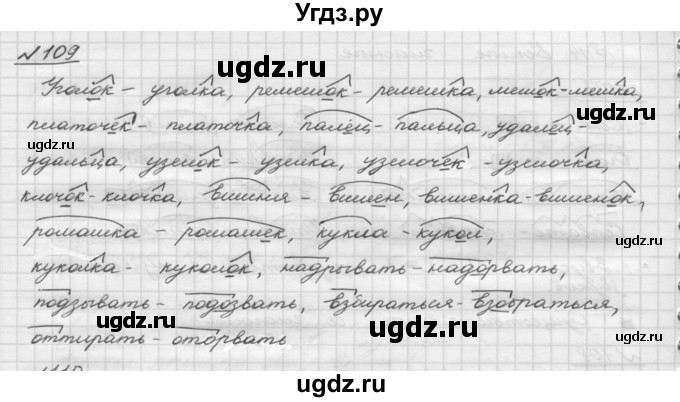 Угдз.ру
№109
Уголок – уголка, ремешок – ремешка, мешок – мешка,
платочек – платочка, палец – пальца, удалец –
удальца, узелок – узелка, узелочек – узелочка,
клочок – клочка, вишня – вишен, вишенка – вишенок,
ромашка – ромашек, кукла – кукол,
куколка – куколок, надрывать – надорвать,
подзывать – подозвать, взбираться – взобраться,
оттирать – оторвать
ugdz.ru
ugdz.ru
ugdz.ru
ugdz.ru
ugdz.ru
ugdz.ru
ugdz.ru
ugdz.ru
ugdz.ru